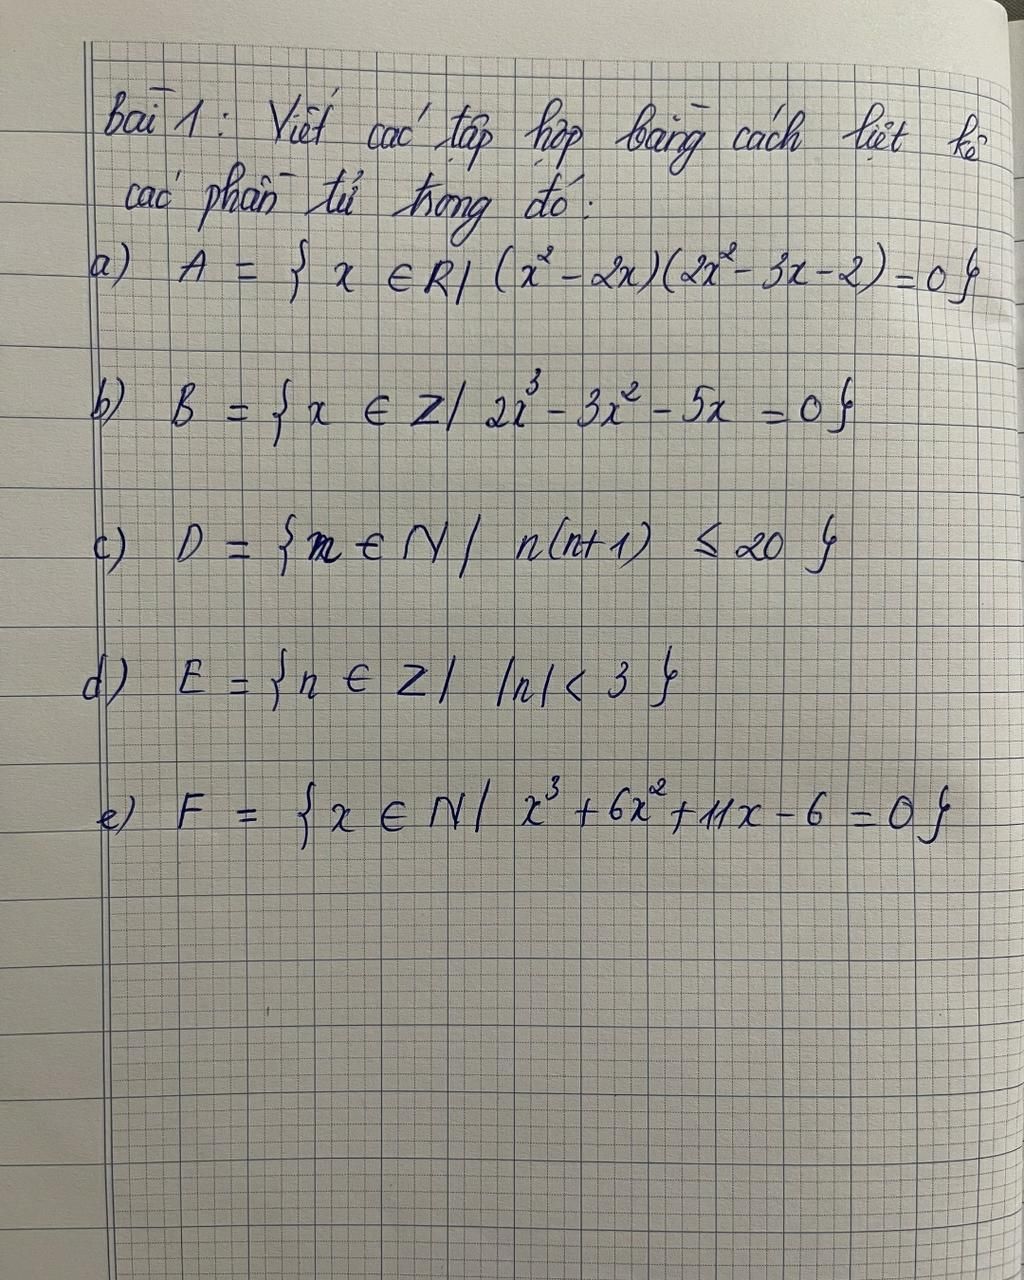 Bài 1: Viết các tập hợp bằng cách liệt kê
các phần tử trong đó:
a) A = { x ∈ R / (x² - 2x)(2x² - 3x - 2) = 0 }
b) B = { x ∈ Z / 2x³ - 3x² - 5x = 0 }
c) D = { n ∈ N / n(n+1) ≤ 20 }
d) E = { n ∈ Z / |n| < 3 }
e) F = { x ∈ N / x³ + 6x² + 11x - 6 = 0 }